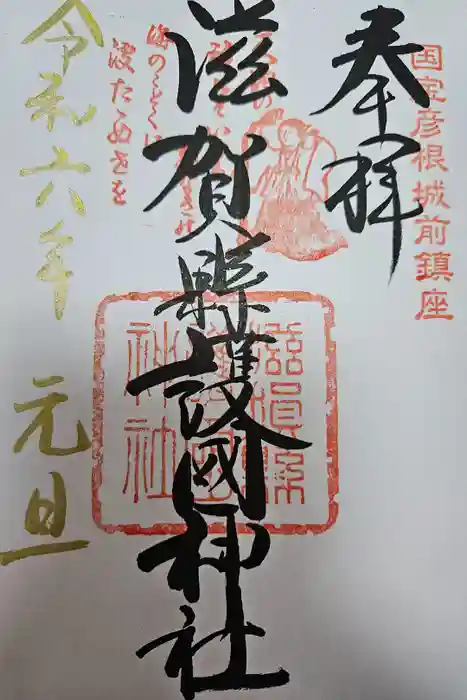 国宝彦根城前鎮座
奉拝
滋賀縣護國神社
滋賀県
護国
神社
令和六年 元旦